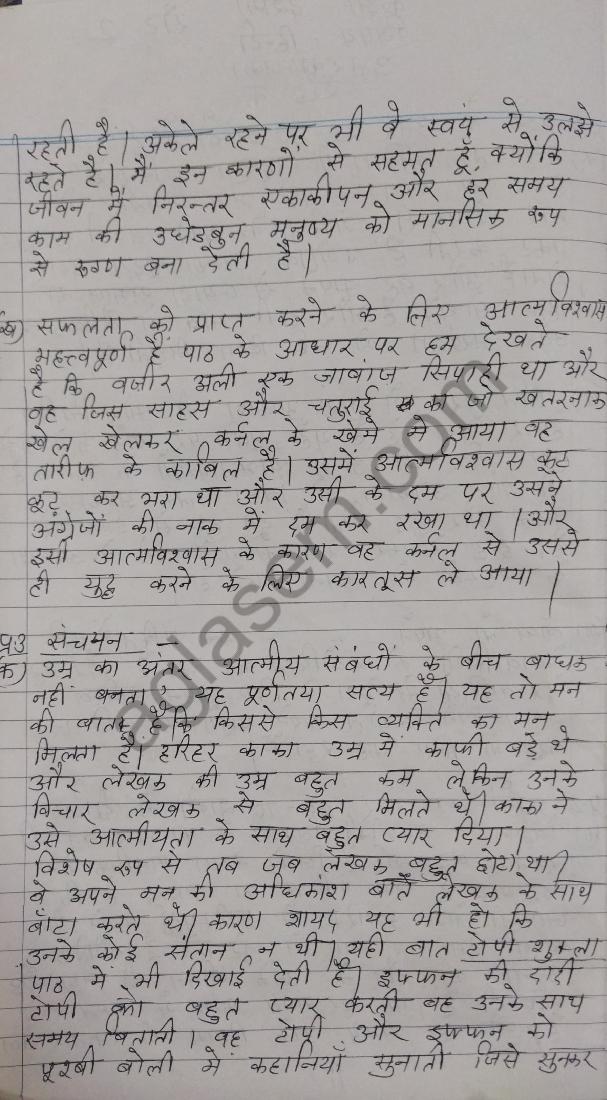 रहती है। अकेले रहने पर भी वे स्वयं से उलझे
रहते है। मैं इन कारणों से सहमत हूँ, क्योंकि
जीवन में निरन्तर एकाकीपन और हर समय
काम की उधेड़बुन मनुष्य को मानसिक रूप
से रूग्ण बना देती है।
ख) सफलता को प्राप्त करने के लिए आत्मविश्वास
महत्त्वपूर्ण है पाठ के आधार पर हम देखते
है कि वजीर अली एक जाबांज सिपाही था और
वह जिस साहस और चतुराई का जो खतरनाक
खेल खेलकर कर्नल के खेमे में आया वह
तारीफ़ के काबिल है। उसमें आत्मविश्वास कूट
कूट कर भरा था और उसी के दम पर उसने
अंग्रेजों की नाक में दम कर रखा था। और
इसी आत्मविश्वास के कारण वह कर्नल से उससे
ही युद्ध करने के लिए कारतूस ले आया।
प्र.3 संचयन -
क) उम्र का अंतर आत्मीय संबंधों के बीच बाधक
नहीं बनता, यह पूर्णतया सत्य है। यह तो मन
की बात है कि किससे किस व्यक्ति का मन
मिलता है। हरिहर काका उम्र में काफी बड़े थे
और लेखक की उम्र बहुत कम लेकिन उनके
विचार लेखक से बहुत मिलते थे। काका ने
उसे आत्मीयता के साथ बहुत प्यार दिया।
विशेष रूप से तब जब लेखक बहुत छोटा था।
वे अपने मन की अधिकांश बातें लेखक के साथ
बाँटा करते थे। कारण शायद यह भी हो कि
उनके कोई संतान न थी। यही बात टोपी शुक्ला
पाठ में भी दिखाई देती है। इफ्फन की दादी
टोपी को बहुत प्यार करती वह उनके साथ
समय बिताती। वह टोपी और इफ्फन को
पूरबी बोली में कहानियाँ सुनाती जिसे सुनकर
aglasem.com